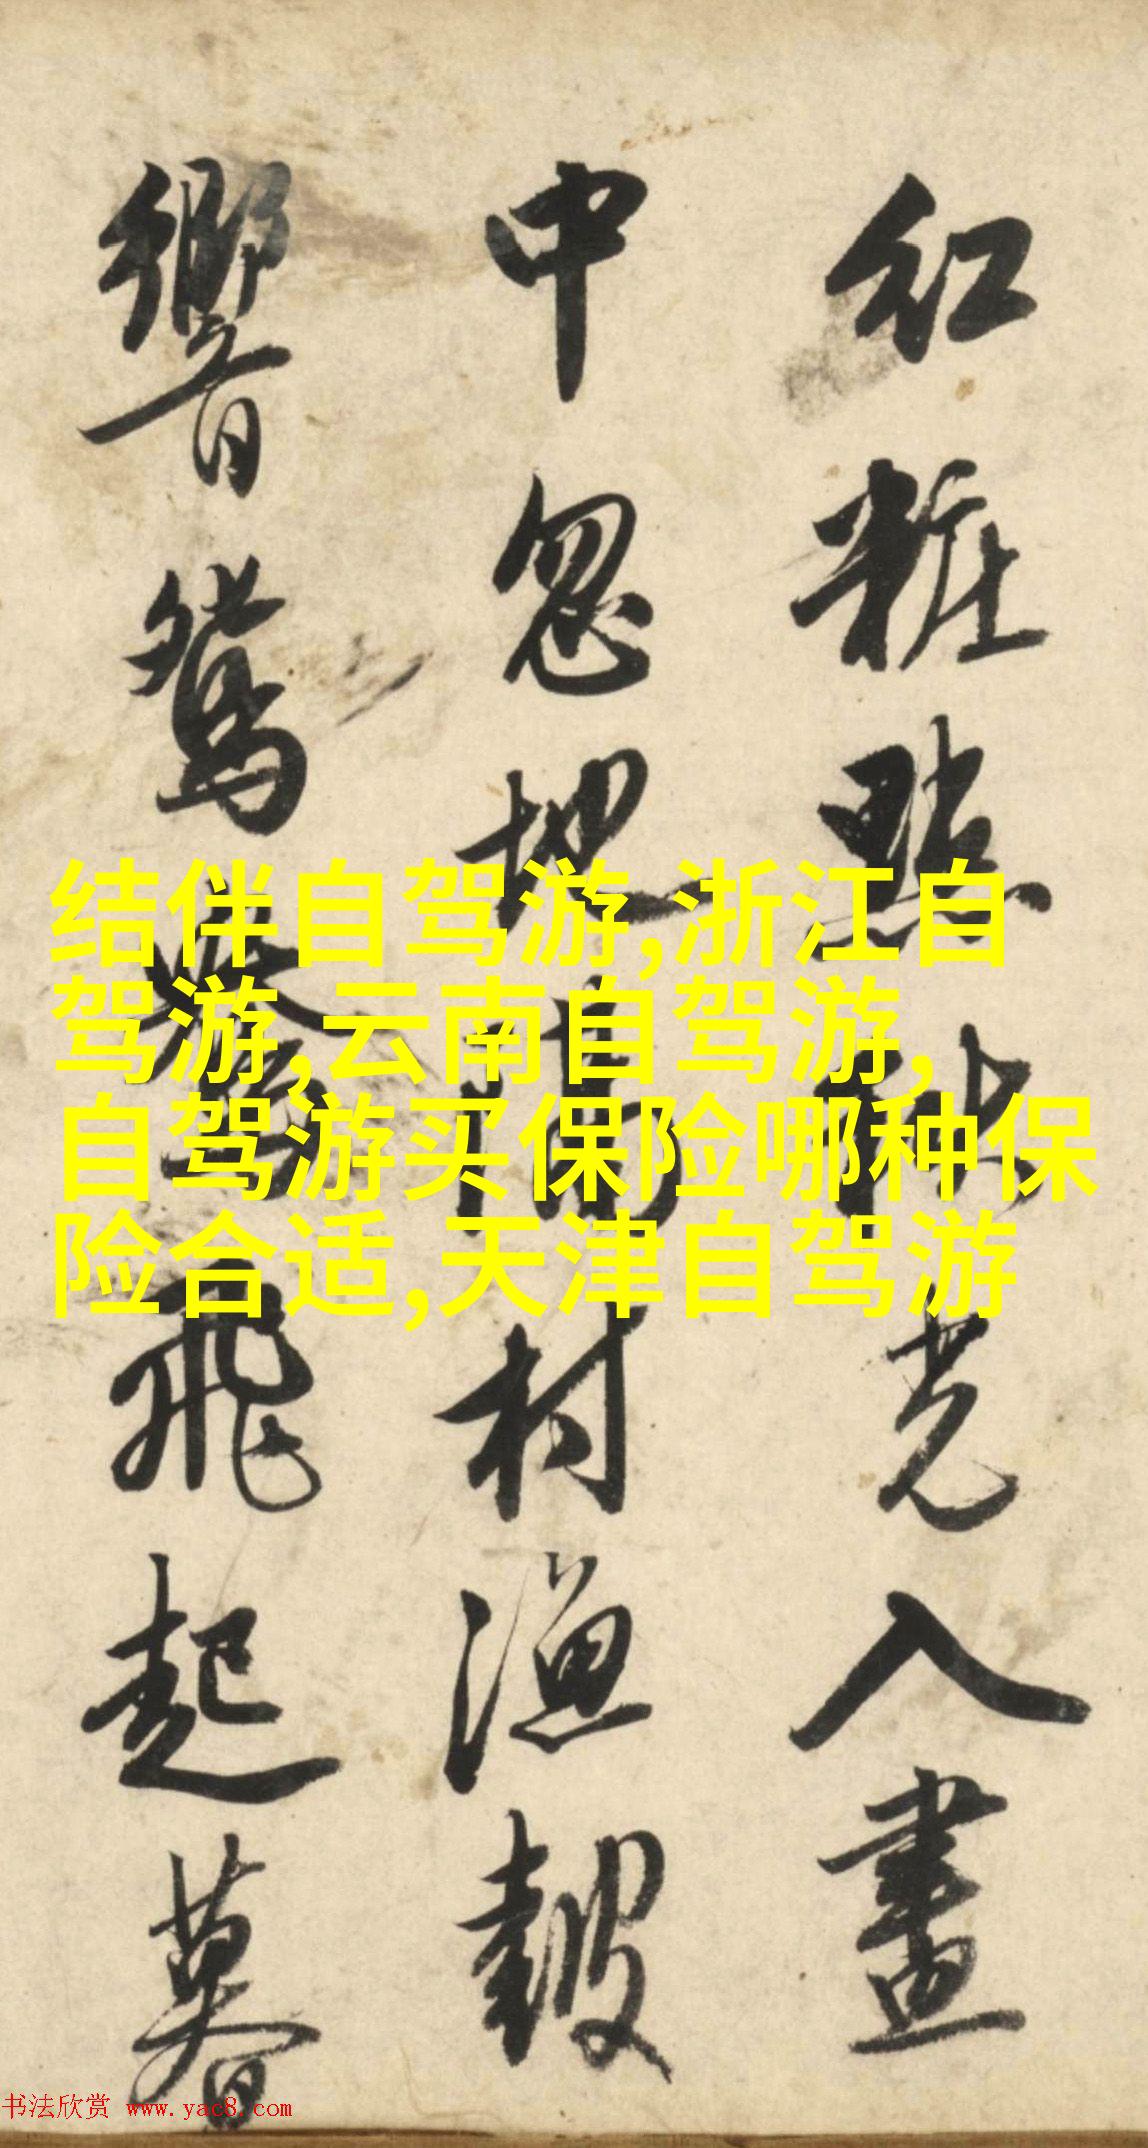 紅粧點秋光入畫
中忽地村漁皷
響鴛鴦飛起暮
结伴自驾游,浙江自
驾游,云南自驾游,
自驾游买保险哪种保
险合适,天津自驾游
书法欣赏 www.yac8.com